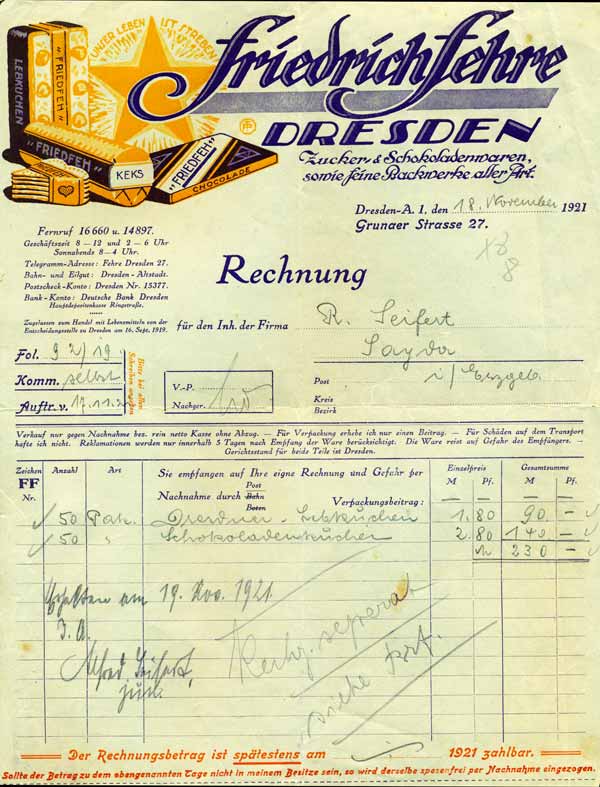 UNSER LEBEN IST STREBEN
LEBKUCHEN
"FRIEDFEH"
"FRIEDFEH"
KEKS
"FRIEDFEH"
CHOCOLADE
Friedrich Fehre
DRESDEN
Zucker & Schokoladenwaren,
sowie feine Backwerke aller Art.
Dresden-A. 1, den 18. November 1921
Grunaer Strasse 27.
Fernruf 16 660 u. 14 897.
Geschäftszeit 8—12 und 2—6 Uhr
Sonnabends 8—4 Uhr.
Telegramm-Adresse: Fehre Dresden 27.
Bahn- und Eilgut: Dresden-Altstadt.
Postscheck-Konto: Dresden Nr. 15377.
Bank-Konto: Deutsche Bank Dresden
Hauptdepositenkasse Ringstraße.
Zugelassen zum Handel mit Lebensmitteln von der
Entscheidungsstelle zu Dresden am 16. Sept. 1919.
Rechnung
für den Inh. der Firma R. Seifert
Sayda
Post i/Erzgeb.
Kreis
Bezirk
Fol. 92/19
Komm. selbst
Auftr. v. 17.11.21
Bitte bei allen
Schreiben angeben
V.-P.
Nachger.
Verkauf nur gegen Nachnahme bez. rein netto Kasse ohne Abzug. — Für Verpackung erhebe ich nur einen Beitrag. — Für Schäden auf dem Transport
hafte ich nicht. Reklamationen werden nur innerhalb 5 Tagen nach Empfang der Ware berücksichtigt. Die Ware reist auf Gefahr des Empfängers. —
Gerichtsstand für beide Teile ist Dresden.
Zeichen FF Nr. Anzahl Art Sie empfangen auf Ihre eigne Rechnung und Gefahr per Einzelpreis M Pf. Gesamtsumme M Pf.
Nachnahme durch Post Bahn Boten Verpackungsbeitrag: — — — —
50 Pak. Dresdner Lebkuchen 1.80 90 —
50 " Schokoladenkuchen 2.80 140 —
M 230 —
Erhalten am 19. Nov. 1921.
I. A.
Alfred Seifert,
jun.
Rechg. separat
siehe
Der Rechnungsbetrag ist spätestens am 1921 zahlbar.
Sollte der Betrag zu dem obengenannten Tage nicht in meinem Besitze sein, so wird derselbe spesenfrei per Nachnahme eingezogen.